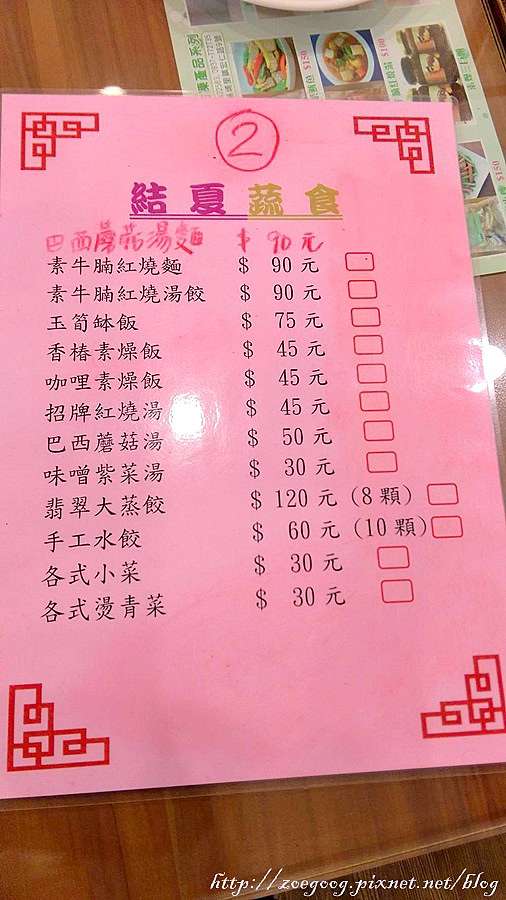 $150
$100
$150
②
結夏蔬食
巴西蘑菇湯麵 $ 90元
素牛腩紅燒麵 $ 90元
素牛腩紅燒湯餃 $ 90元
玉筍缽飯 $ 75元
香椿素燥飯 $ 45元
咖哩素燥飯 $ 45元
招牌紅燒湯 $ 45元
巴西蘑菇湯 $ 50元
味噌紫菜湯 $ 30元
翡翠大蒸餃 $ 120元 (8顆)
手工水餃 $ 60元 (10顆)
各式小菜 $ 30元
各式燙青菜 $ 30元
http://zoegoog.pixnet.net/blog